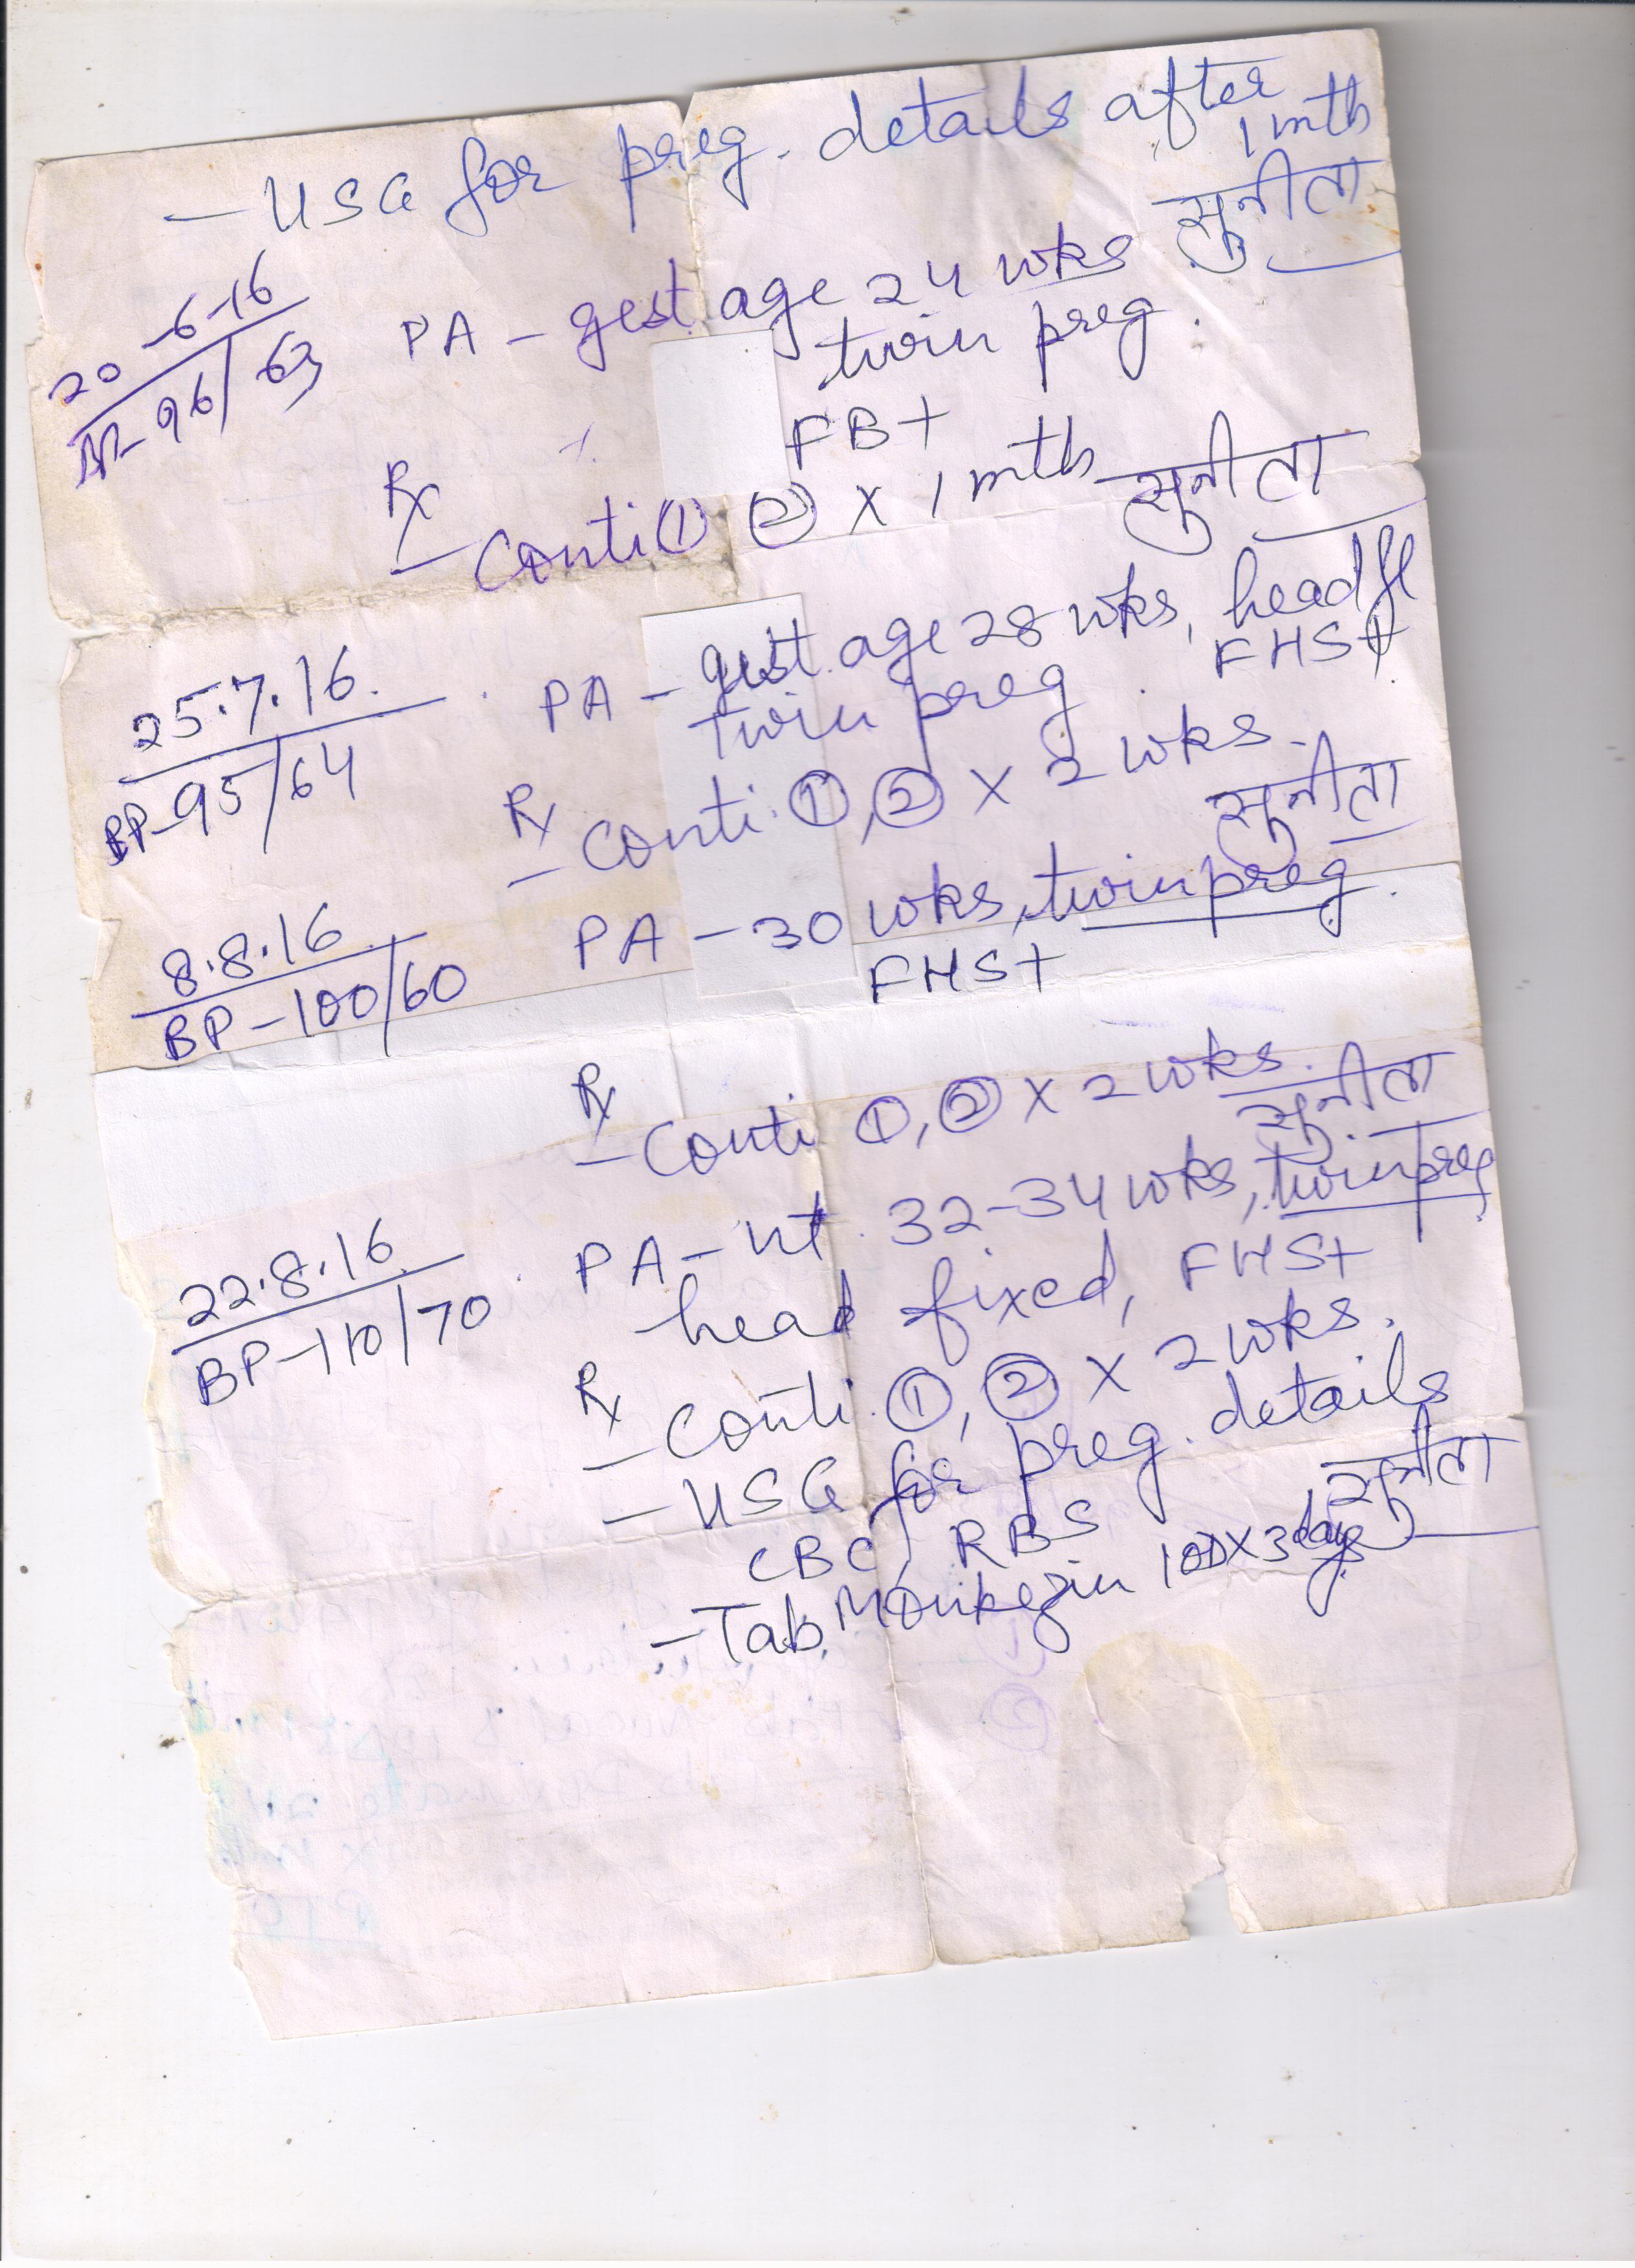 - USG for preg. details after
1 mth
सुनीता
20-6-16
BP-96/63
PA - gest age 24 wks
twin preg.
FB+
Rx
- Conti ① ② x 1 mth
सुनीता
25.7.16.
BP-95/64
PA - gest. age 28 wks, head fl
twin preg. FHS+
Rx
- Conti. ①, ② x 2 wks.
सुनीता
8.8.16
BP-100/60
PA - 30 wks, twin preg.
FHS+
Rx
- Conti ①, ② x 2 wks.
सुनीता
22.8.16
BP-110/70
PA - ut. 32-34 wks, twin preg
head fixed, FHS+
Rx
- Conti. ①, ② x 2 wks.
- USG for preg. details
CBC, RBS
सुनीता
- Tab. 1OD x 3 days